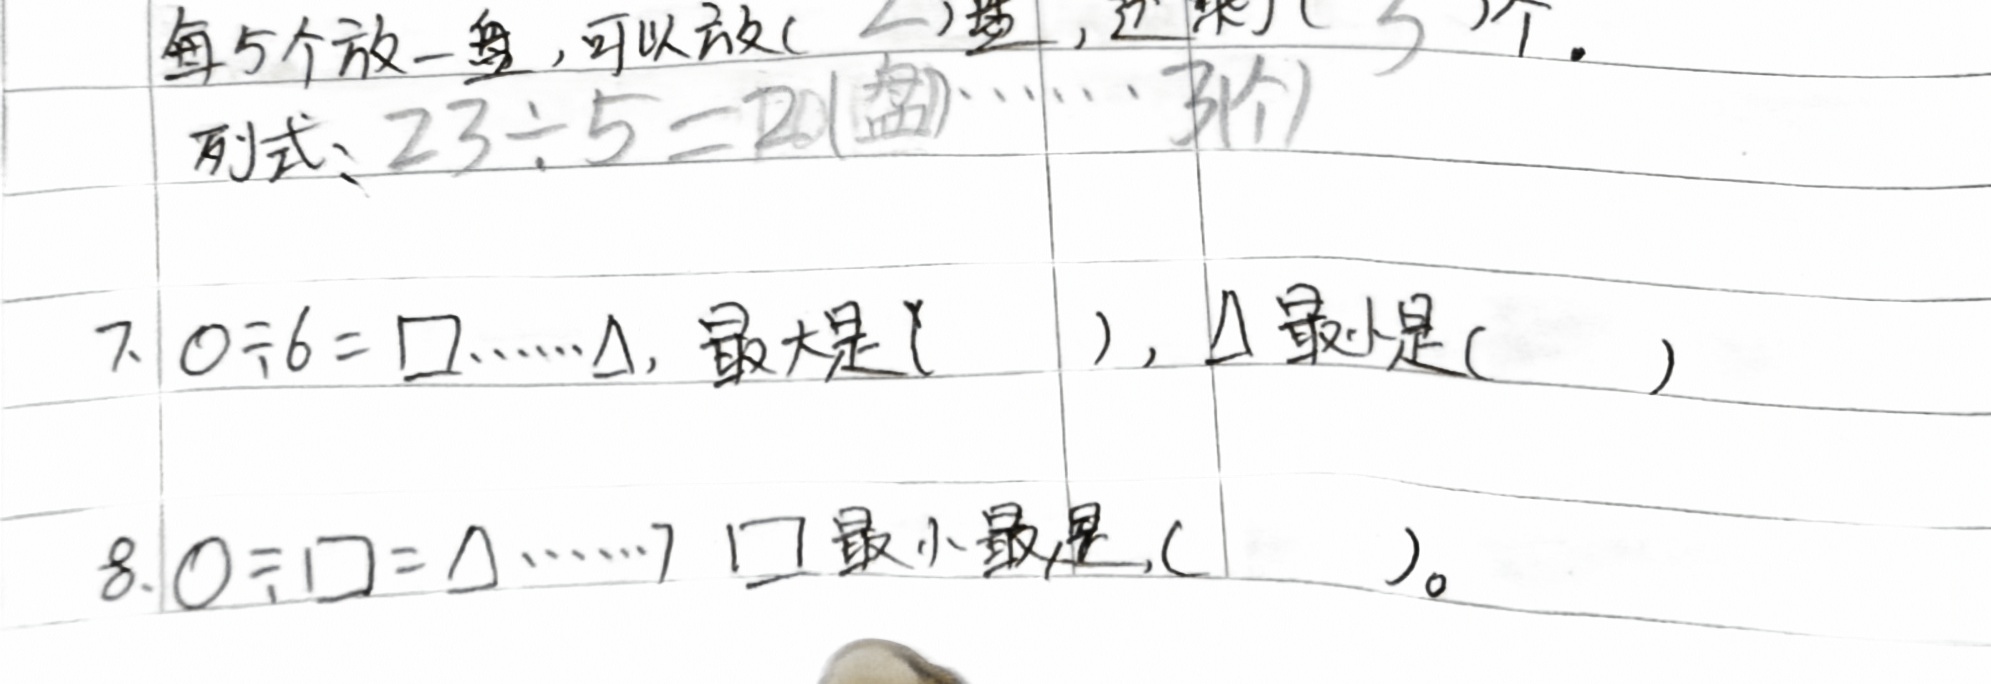 每5个放一盘,可以放( )盘,还剩了( 3 )个.
列式、23÷5=20(盘)……3(个)
7. O÷6=□……△, 最大是( ), △最小是( )
8. O÷□=△……7 □最小最是,( )。